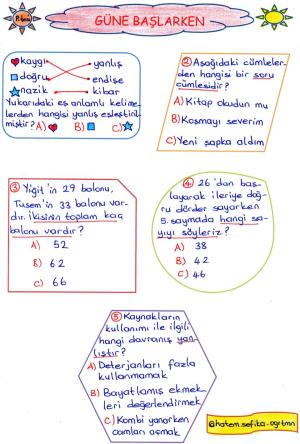 P.tesi
GÜNE BAŞLARKEN
kaygı yanlış
doğru endişe
nazik kibar
Yukarıdaki eş anlamlı kelime-
lerden hangisi yanlış eşleştiril-
miştir? A) B) C)
② Aşağıdaki cümleler-
den hangisi bir soru
cümlesidir?
A) Kitap okudun mu
B) Koşmayı severim
C) Yeni şapka aldım
③ Yiğit'in 29 balonu,
Tusem'in 33 balonu var-
dır. İkisinin toplam kaç
balonu vardır?
A) 52
B) 62
C) 66
④ 26'dan baş-
layarak ileriye doğ-
ru dörder sayarken
5. saymada hangi sa-
yıyı söyleriz?
A) 38
B) 42
C) 46
⑤ Kaynakların
kullanımı ile ilgili
hangi davranış yan-
lıştır?
A) Deterjanları fazla
kullanmamak
B) Bayatlamış ekmek-
leri değerlendirmek
C) Kombi yanarken
camları açmak
@hatem.sefika.ogrtmn